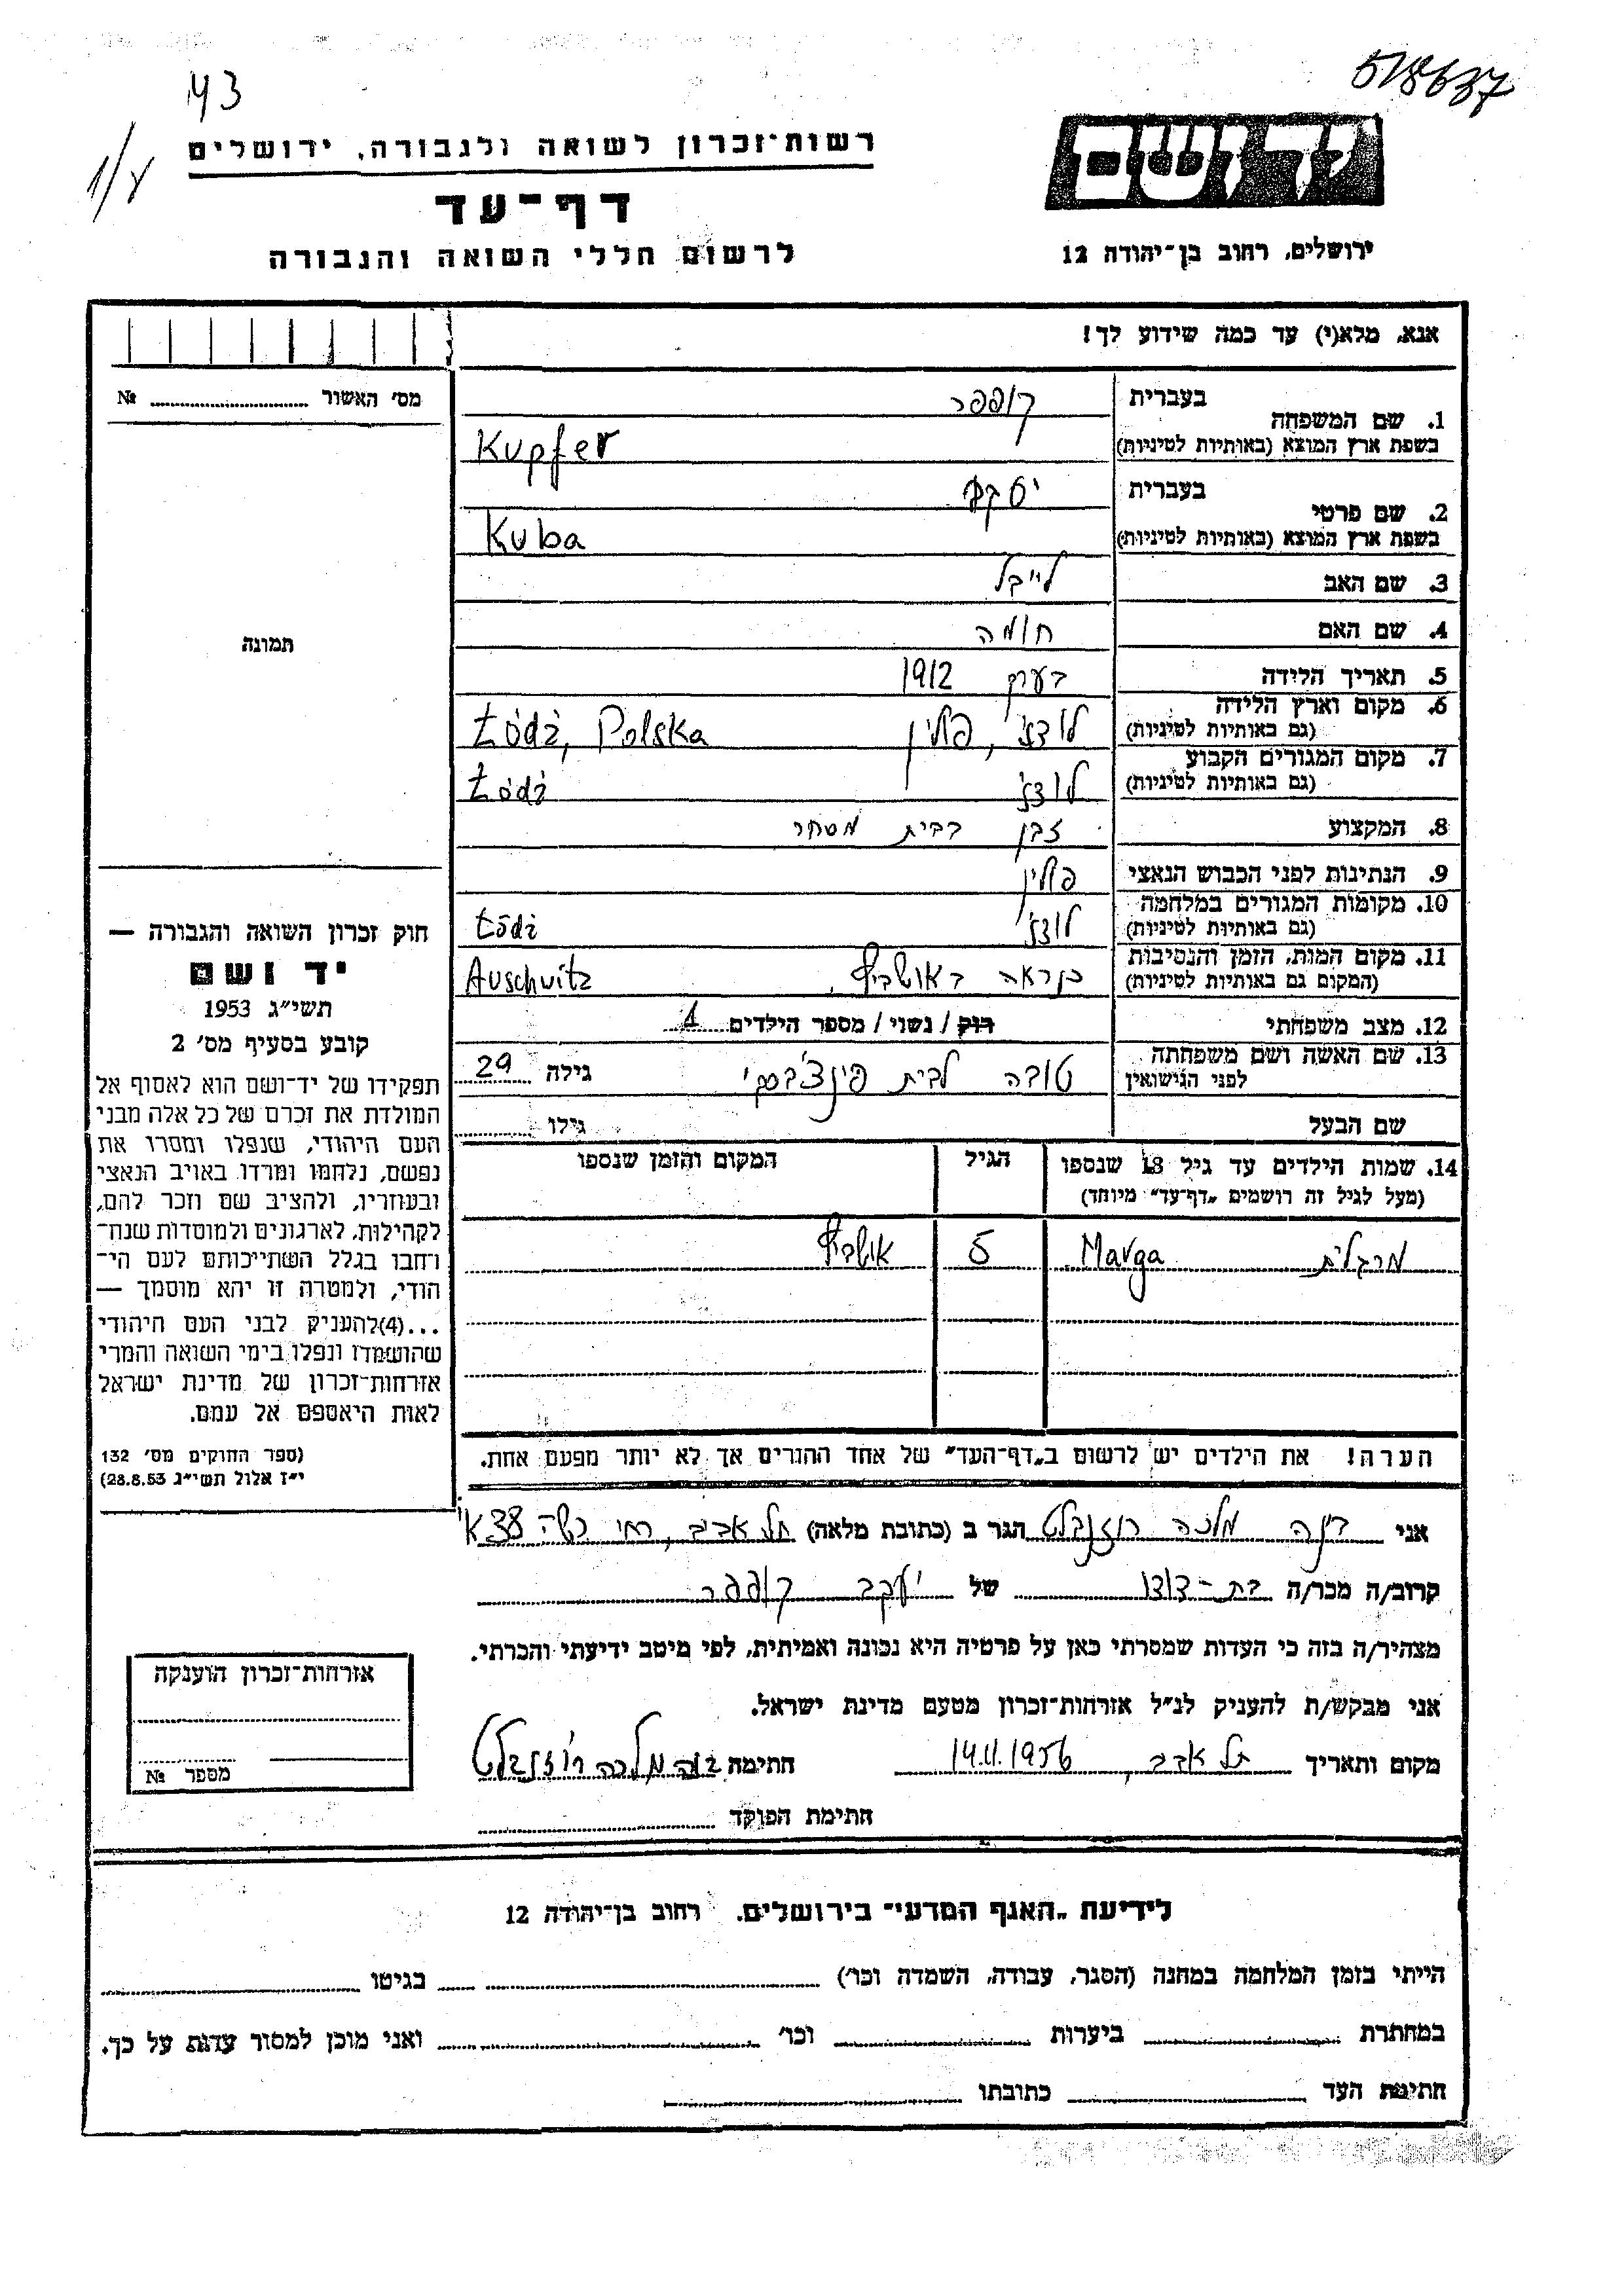 43
518637
1/8
יד ושם
רשות־זכרון לשואה ולגבורה, ירושלים
דף־עד
לרשום חללי השואה והגבורה
ירושלים, רחוב בן־יהודה 12
אנא, מלא(י) עד כמה שידוע לך!
מס׳ האשור № ........
1. שם המשפחה בעברית קופפר
בשפת ארץ המוצא (באותיות לטיניות) Kupfer
2. שם פרטי בעברית יעקב
בשפת ארץ המוצא (באותיות לטיניות) Kuba
3. שם האב לייבל
4. שם האם חומה
5. תאריך הלידה בערך 1912
6. מקום וארץ הלידה (גם באותיות לטיניות) לודז׳, פולין Łódź, Polska
7. מקום המגורים הקבוע (גם באותיות לטיניות) לודז׳ Łódź
8. המקצוע זבן בבית מסחר
9. הנתינות לפני הכבוש הנאצי פולין
10. מקומות המגורים במלחמה (גם באותיות לטיניות) לודז׳ Łódź
11. מקום המות, הזמן והנסיבות (המקום גם באותיות לטיניות) כנראה באושביץ, Auschwitz
12. מצב משפחתי רוק / נשוי / מספר הילדים 1
13. שם האשה ושם משפחתה לפני הנישואין טובה לבית פינצ׳בסקי גילה 29
שם הבעל גילו
14. שמות הילדים עד גיל 18 שנספו הגיל המקום והזמן שנספו
(מעל לגיל זה רושמים „דף־עד״ מיוחד)
מרגלית Marga 5 אושביץ
הערה! את הילדים יש לרשום ב„דף־העד״ של אחד ההורים אך לא יותר מפעם אחת.
תמונה
חוק זכרון השואה והגבורה —
יד ושם
תשי״ג 1953
קובע בסעיף מס׳ 2
תפקידו של יד־ושם הוא לאסוף אל
המולדת את זכרם של כל אלה מבני
העם היהודי, שנפלו ומסרו את
נפשם, נלחמו ומרדו באויב הנאצי
ובעוזריו, ולהציב שם וזכר להם,
לקהילות, לארגונים ולמוסדות שנח־
רחבו בגלל השתייכותם לעם הי־
הודי, ולמטרה זו יהא מוסמך —
...(4)להעניק לבני העם היהודי
שהושמדו ונפלו בימי השואה והמרי
אזרחות־זכרון של מדינת ישראל
לאות היאספם אל עמם.
(ספר החוקים מס׳ 132
י״ז אלול תשי״ג 28.8.53)
אני דינה מלכה רוזנבלט הגר ב (כתובת מלאה) תל אביב, רח׳ 38 א׳
קרוב/ה מכר/ה בת-דודו של יעקב קופפר
מצהיר/ה בזה כי העדות שמסרתי כאן על פרטיה היא נכונה ואמיתית, לפי מיטב ידיעתי והכרתי.
אני מבקש/ת להעניק לנ״ל אזרחות־זכרון מטעם מדינת ישראל.
מקום ותאריך תל אביב, 14.11.1956 חתימה דינה מלכה רוזנבלט
חתימת הפוקד
אזרחות־זכרון הוענקה
מספר №
לידיעת „האגף המדעי״ בירושלים. רחוב בן־יהודה 12
הייתי בזמן המלחמה במחנה (הסגר, עבודה, השמדה וכו׳) בגיטו
במחתרת ביערות וכו׳ ואני מוכן למסור עדות על כך.
חתימת העד כתובתו